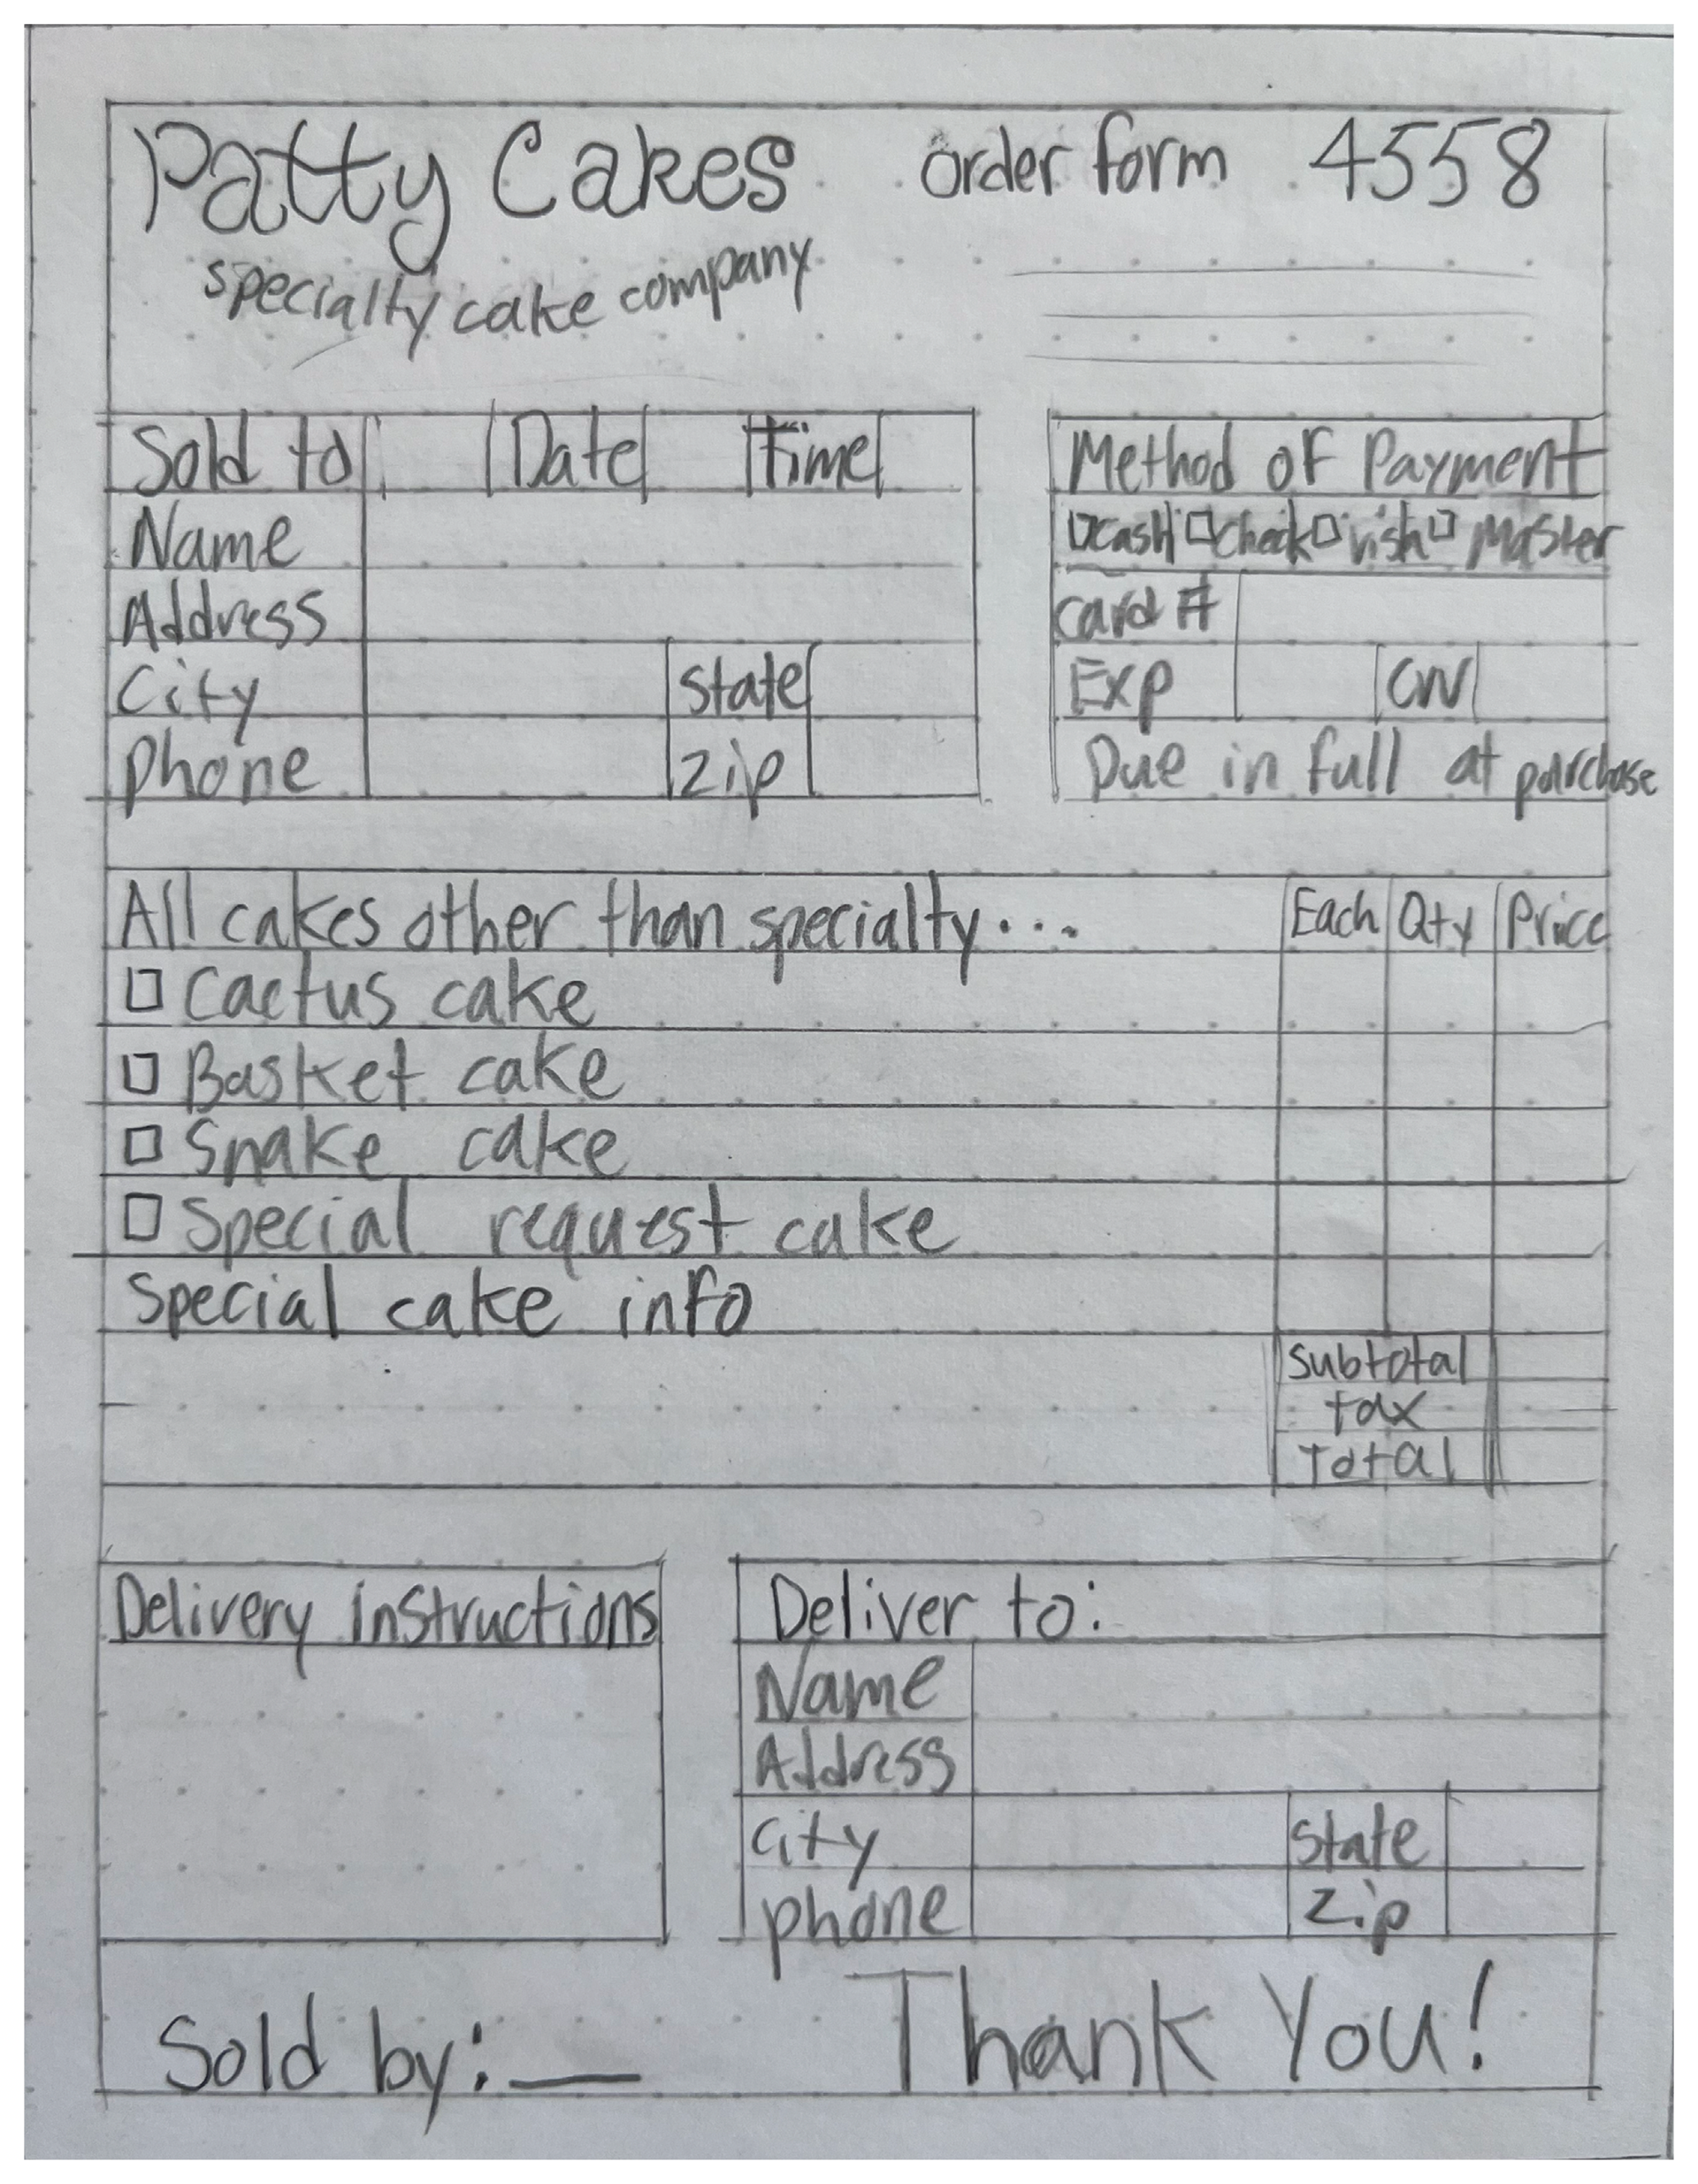 Patty Cakes order form 4558
specialty cake company
Sold to Date Time
Name
Address
City State
phone zip
Method of Payment
cash check vish Master
card #
Exp CVV
Due in full at purchase
All cakes other than specialty... Each Qty Price
Cactus cake
Basket cake
Snake cake
Special request cake
Special cake info
subtotal
tax
Total
Delivery instructions
Deliver to:
Name
Address
City State
phone zip
Sold by: Thank You!